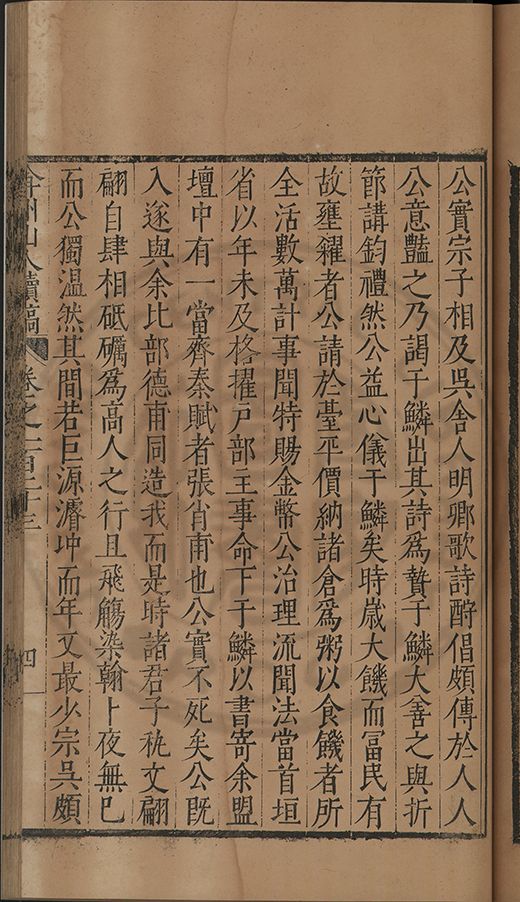 公實宗子相及吳舍人明卿歌詩酧倡頗傳於人人
公意豔之乃謁于鱗出其詩爲贄于鱗大善之與折
節講鈞禮然公益心儀于鱗矣時歲大饑而冨民有
故壅糴者公請於臺平價納諸倉爲粥以食饑者所
全活數萬計事聞特賜金幣公治理流聞法當首垣
省以年未及格擢戸部主事命下于鱗以書寄余盟
壇中有一當齊秦賦者張肖甫也公實不死矣公旣
入遂與余比部德甫同造我而是時諸君子秇文翩
翩自肆相砥礪爲高人之行且飛觴染翰卜夜無已
而公獨温然其間若巨源濬冲而年又最少宗吳頗
弇州山人續稿 卷之一百二十三 四